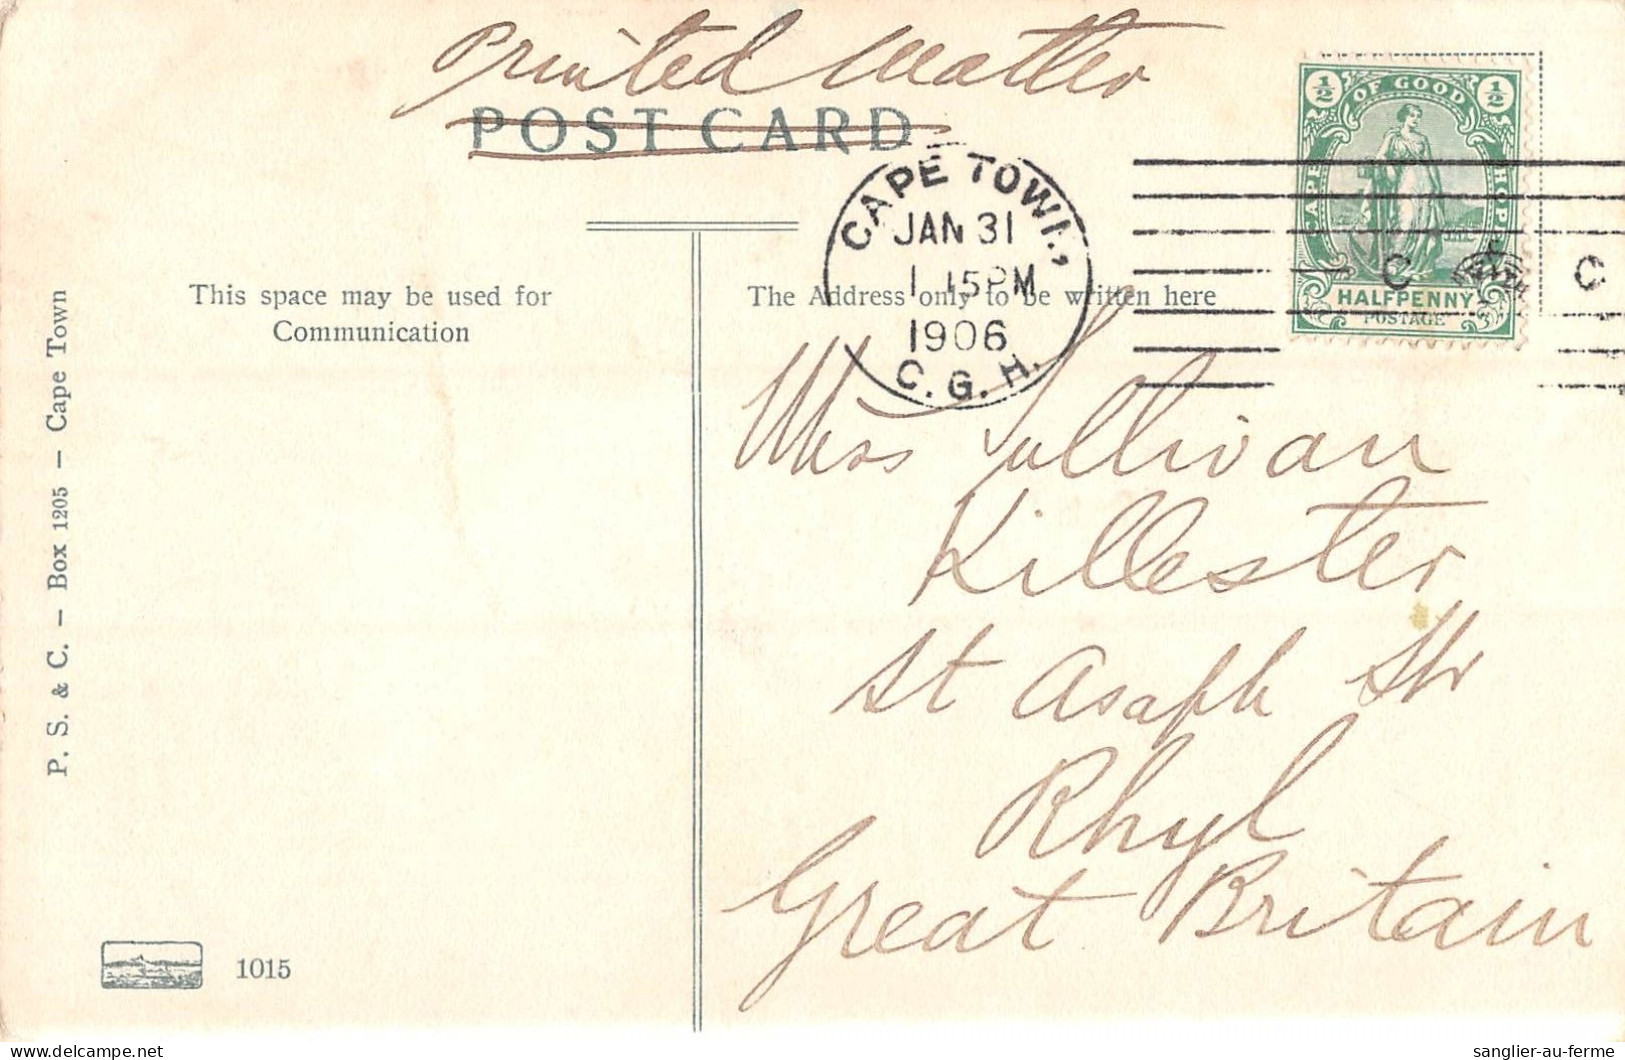 Printed Matter
POST CARD
½ OF GOOD ½
CAPE
HOPE
HALFPENNY
POSTAGE
CAPE TOWN,
JAN 31
1 15PM
1906
C. G. H.
C C
This space may be used for
Communication
The Address only to be written here
Miss Sullivan
Killester
St Asaph Str
Rhyl
Great Britain
P. S. & C. — Box 1205 — Cape Town
1015
delcampe.net
sanglier-au-ferme